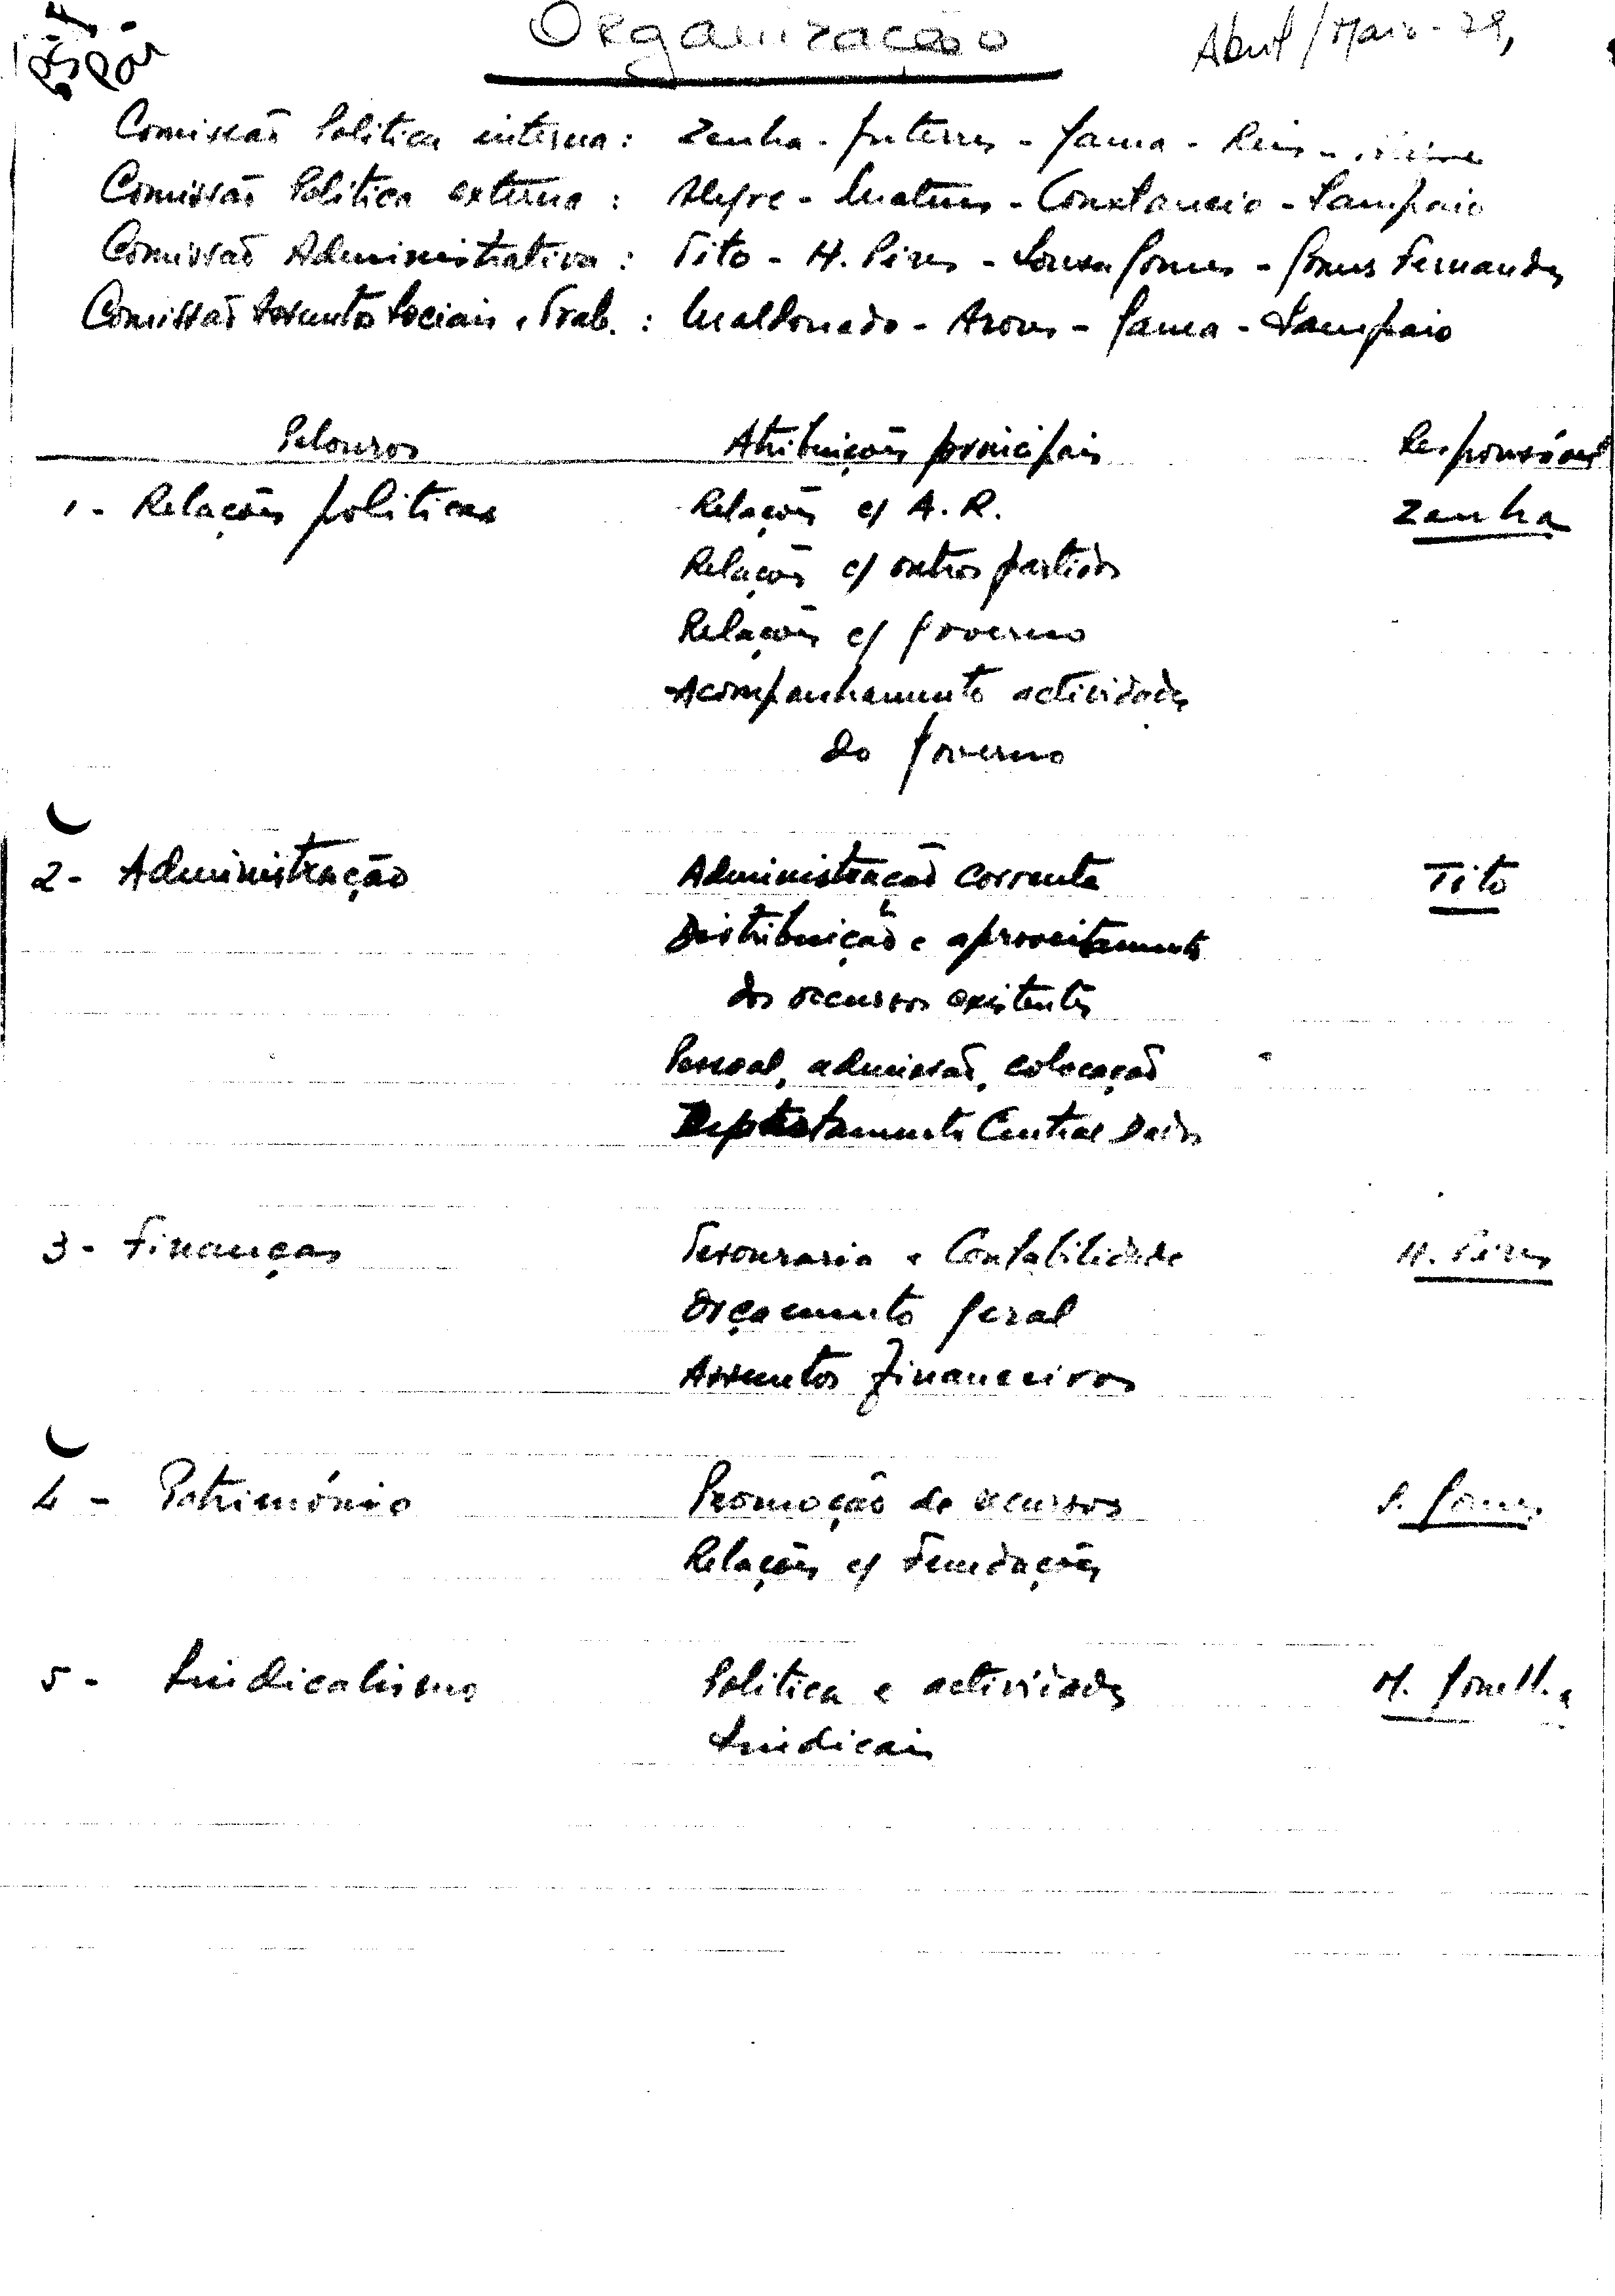 Organização
Abril/Maio-79,
Comissão Politica interna: Zenha - Guterres - Gama - Reis -
Comissão Politica externa: Alegre - Mateus - Constancio - Sampaio
Comissão Administrativa: Tito - H. Pires - Sousa Gomes - Gomes Fernandes
Comissão Assuntos Sociais e Trab.: Maldonado - Arons - Gama - Sampaio
Pelouros Atribuições principais Responsável
1 - Relações politicas Relações c/ A.R. Zenha
Relações c/ outros partidos
Relações c/ governo
Acompanhamento actividades
do governo
2 - Administração Administração corrente Tito
Distribuição e aproveitamento
dos recursos existentes
Pessoal, admissão, colocação
Departamento Central Dados
3 - Finanças Tesouraria e Contabilidade H. Pires
Orçamento geral
Assuntos financeiros
4 - Património Promoção de recursos S. Gomes
Relações c/ Fundações
5 - Sindicalismo Politica e actividades M.
Sindicais